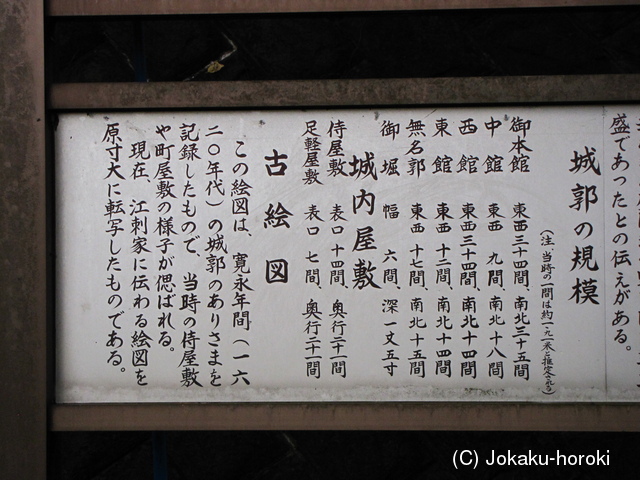 盛であったとの伝えがある。
城郭の規模
(注、当時の一間は約一・九一米と推定される)
御本館 東西三十四間、南北三十五間
中館 東西 九間、南北十八間
西館 東西三十四間、南北十四間
東館 東西 十二間、南北十四間
無名郭 東西 十七間、南北十五間
御堀 幅 六間、深一丈五寸
城内屋敷
侍屋敷 表口 十四間、奥行二十一間
足軽屋敷 表口 七間、奥行二十一間
古絵図
この絵図は、寛永年間(一六
二〇年代)の城郭のありさまを
記録したもので、当時の侍屋敷
や町屋敷の様子が偲ばれる。
現在、江刺家に伝わる絵図を
原寸大に転写したものである。
(C) Jokaku-horoki